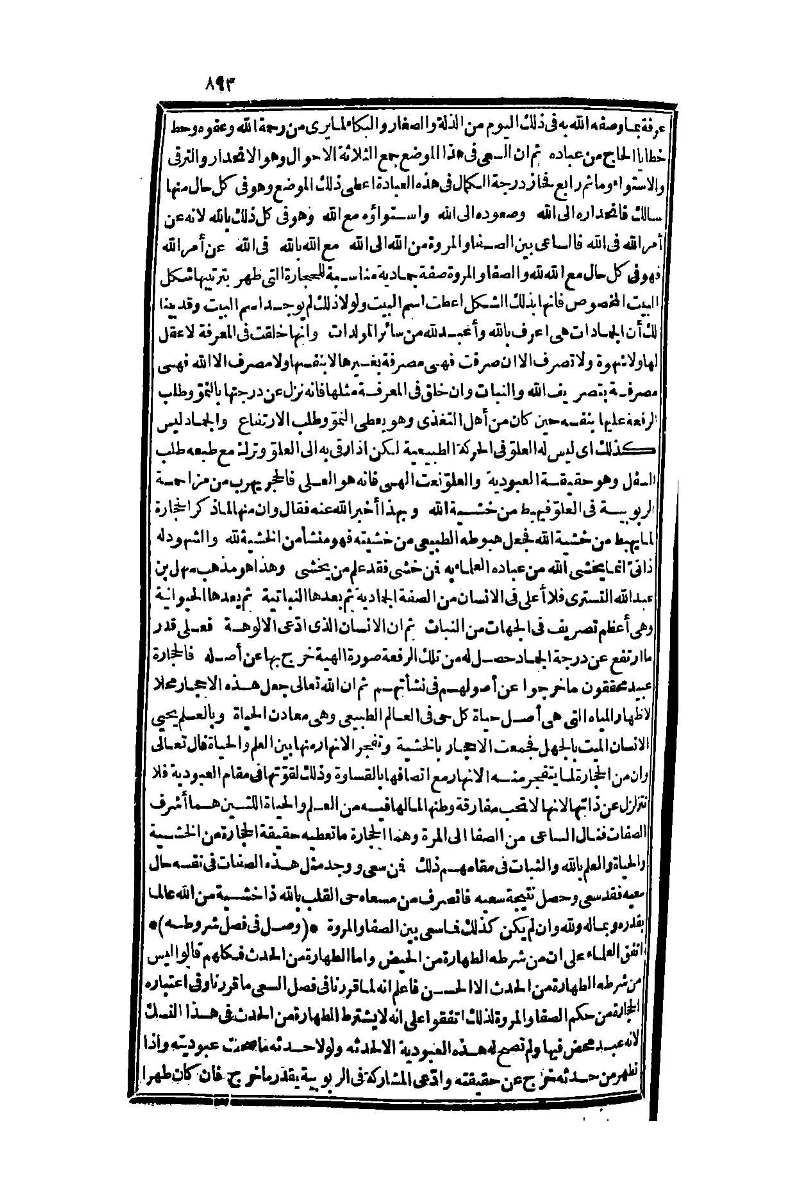 ٨٩٣
عرفة بما وصفه الله به فى ذلك اليوم من الذلة والصغار والبكاء لما يرى من رحمة الله وعفوه وحط
خطايا الحاج من عباده ثم ان السعى فى هذا الموضع جمع الثلاثة الاحوال وهو الانحدار والترقى
والاستواء وما ثم رابع فحاز درجة الكمال فى هذه العبادة اعطى ذلك الموضع وهو فى كل حال منها
سالك فانحداره الى الله وصعوده الى الله واستواؤه مع الله وهو فى كل ذلك بالله لانه عن
أمر الله فى الله فالساعى بين الصفا والمروة من الله الى الله مع الله بالله فى الله عن أمر الله
فهو فى كل حال مع الله لله والصفا والمروة صفة جمادية مناسبة للحجارة التى ظهر بترتيبها شكل
البيت المخصوص فانها بذلك الشكل اعطت اسم البيت ولولا ذلك لم يوجد اسم البيت وقد بينا
لك أن الجمادات هى اعرف بالله وأعبد لله من سائر المولدات وانها خلقت فى المعرفة لا عقل
لها ولا شهوة ولا تصرف الا ان صرفت فهى مصرفة بغيرها لا بنفسها ولا مصرف الا الله فهى
مصرفة بتصريف الله والنبات وان خلق فى المعرفة مثلها فانه نزل عن درجتها بالنمو وطلب
الرفعة عليها بنفسه حين كان من أهل التغذى وهو يعطى النمو وطلب الارتفاع والجماد ليس
كذلك اى ليس له العلو فى الحركة الطبيعية لكن اذا رقى به الى العلو وترك مع طبعه طلب
السفل وهو حقيقة العبودية والعلو نعت الهى فانه هو العلى فالحجر يهرب من مزاحمة
الربوبية فى العلو فيهبط من خشية الله وبهذا أخبر الله عنه فقال وان منها لما ذكر الحجارة
لما يهبط من خشية الله فجعل هبوطه الطبيعى من خشيته فهو منشأ من الخشية لله والشهود له
ذاتى انما يخشى الله من عباده العلماء به فمن خشى فقد علم من يخشى وهذا هو مذهب سهل بن
عبد الله التسترى فلا أعلى فى الانسان من الصفة الجمادية ثم بعدها النباتية ثم بعدها الحيوانية
وهى أعظم تصريف فى الجهات من النبات ثم ان الانسان الذى ادعى الالوهة فعلى قدر
ما ارتفع عن درجة الجماد حصل له من تلك الرفعة صورة الهية خرج بها عن أصله فالحجارة
عبيد محققون ما خرجوا عن أصولهم فى نشأتهم ثم ان الله تعالى جعل هذه الاحجار محلا
لاظهار المياه التى هى أصل حياة كل حى فى العالم الطبيعى وهى معادن الحياة وبالعلم يحيى
الانسان الميت بالجهل فجمعت الاحجار بالخشية وتفجر الانهار منها بين العلم والحياة قال تعالى
وان من الحجارة لما يتفجر منه الانهار مع اتصافها بالقساوة وذلك لقوتها فى مقام العبودية فلا
تتزلزل عن ذاتها لانها لا تحب مفارقة وطنها لما لها فيه من العلم والحياة اللتين هما أشرف
الصفات فنال الساعى من الصفا الى المروة وهما الحجارة ما تعطيه حقيقة الحجارة من الخشية
والحياة والعلم بالله والثبات فى مقامهم ذلك فمن سعى ووجد مثل هذه الصفات فى نفسه حال
سعيه فقد سعى وحصل نتيجة سعيه فانصرف من مسعاه حى القلب بالله ذا خشية من الله عالما
بقدره وبماله ولله وان لم يكن كذلك فما سعى بين الصفا والمروة * (وصل فى فصل شروطه) *
اتفق العلماء على ان من شرطه الطهارة من الحيض واما الطهارة من الحدث فكلهم قالوا ليس
من شرطه الطهارة من الحدث الا الحسن فاعلم انه لما قررنا فى فصل السعى ما قررناه فى اعتباره
الحجارة من حكم الصفا والمروة لذلك اتفقوا على انه لا يشترط الطهارة من الحدث فى هذا النسك
لانه عبد محض فيها ولم تصح له هذه العبودية الا لحدثه ولولا حدثه ما صحت عبوديته واذا
تطهر من حدثه خرج عن حقيقته وادعى المشاركة فى الربوبية بقدر ما خرج فان كان طهرا